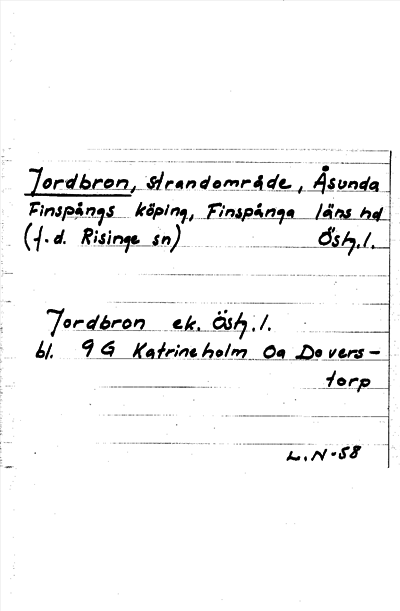 Jordbron, strandområde, Åsunda
Finspångs köping, Finspånga läns hd
(f.d. Risinge sn) Östg.l.
Jordbron ek. Östg.l.
bl. 9 G Katrineholm Oa Dovers-
torp
L.N-58